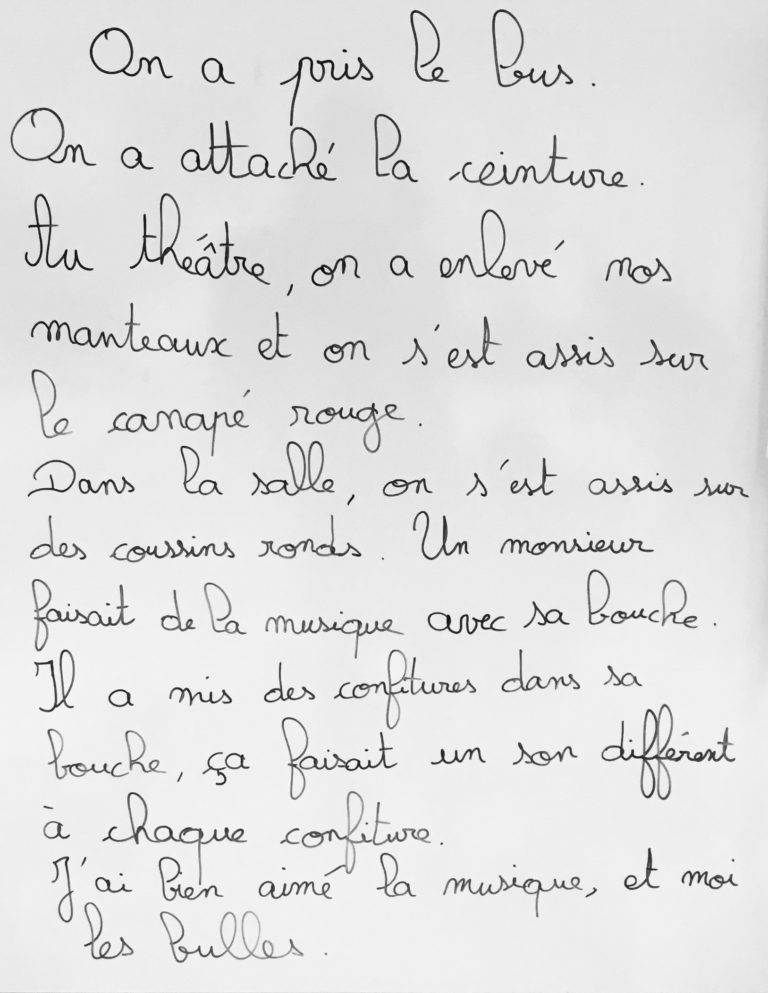 On a pris le bus.
On a attaché la ceinture.
Au théâtre, on a enlevé nos
manteaux et on s'est assis sur
le canapé rouge.
Dans la salle, on s'est assis sur
des coussins ronds. Un monsieur
faisait de la musique avec sa bouche.
Il a mis des confitures dans sa
bouche, ça faisait un son différent
à chaque confiture.
J'ai bien aimé la musique, et moi
les bulles.